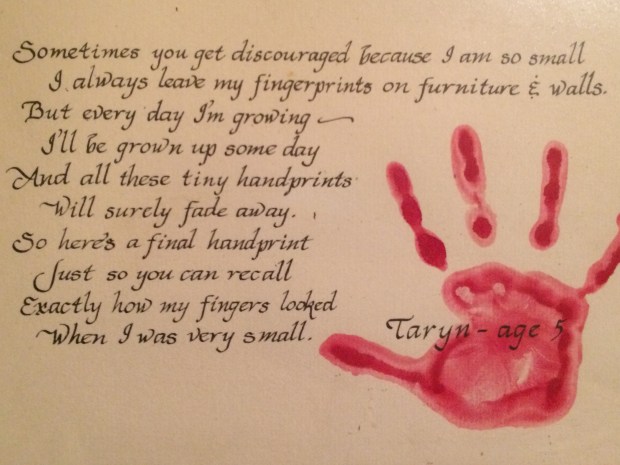 Sometimes you get discouraged because I am so small
I always leave my fingerprints on furniture & walls.
But every day I'm growing —
I'll be grown up some day
And all these tiny handprints
Will surely fade away.
So here's a final handprint
Just so you can recall
Exactly how my fingers looked
When I was very small.
Taryn - age 5